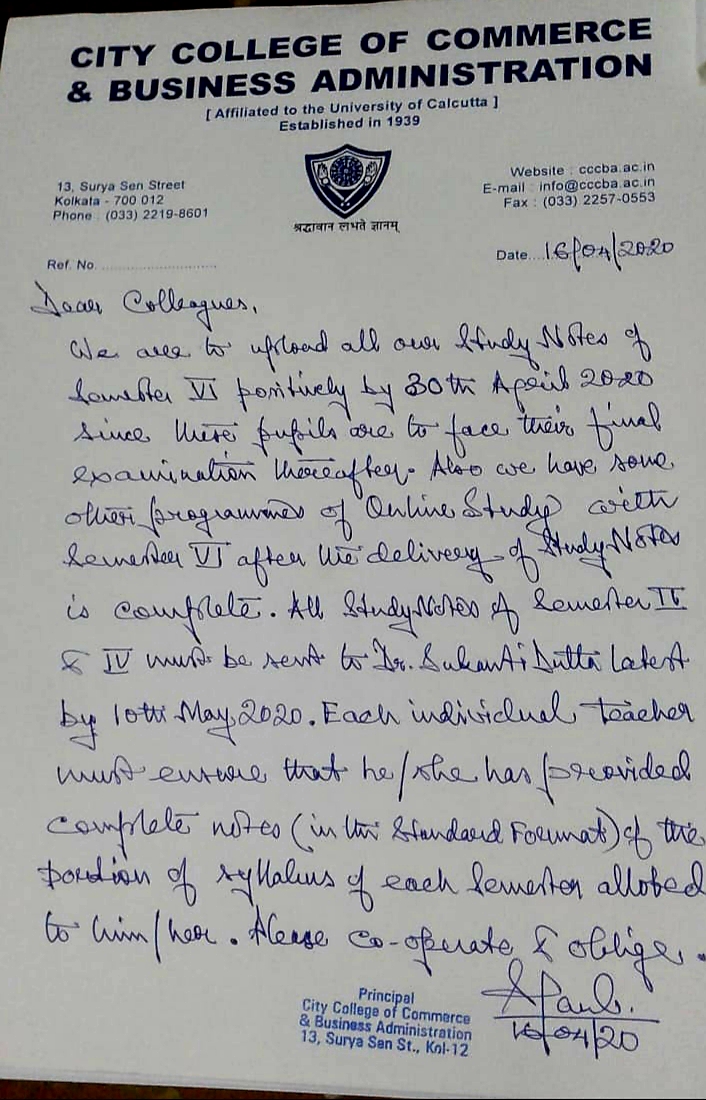 CITY COLLEGE OF COMMERCE
& BUSINESS ADMINISTRATION
[ Affiliated to the University of Calcutta ]
Established in 1939
13, Surya Sen Street
Kolkata - 700 012
Phone : (033) 2219-8601
श्रद्धावान लभते ज्ञानम्
Website : cccba.ac.in
E-mail : info@cccba.ac.in
Fax : (033) 2257-0553
Ref. No. ..............................
Date....16/04/2020
Dear Colleagues,
We are to upload all our Study Notes of
Semester VI positively by 30th April 2020
since these pupils are to face their final
examination thereafter. Also we have some
other programmes of Online Study with
Semester VI after the delivery of Study Notes
is complete. All Study Notes of Semester II
& IV must be sent to Dr. Sukanti Dutta latest
by 10th May, 2020. Each individual teacher
must ensure that he/she has provided
complete notes (in the Standard Format) of the
portion of syllabus of each Semester alloted
to him/her. Please co-operate & oblige.
16/04/20
Principal
City College of Commerce
& Business Administration
13, Surya Sen St., Kol-12